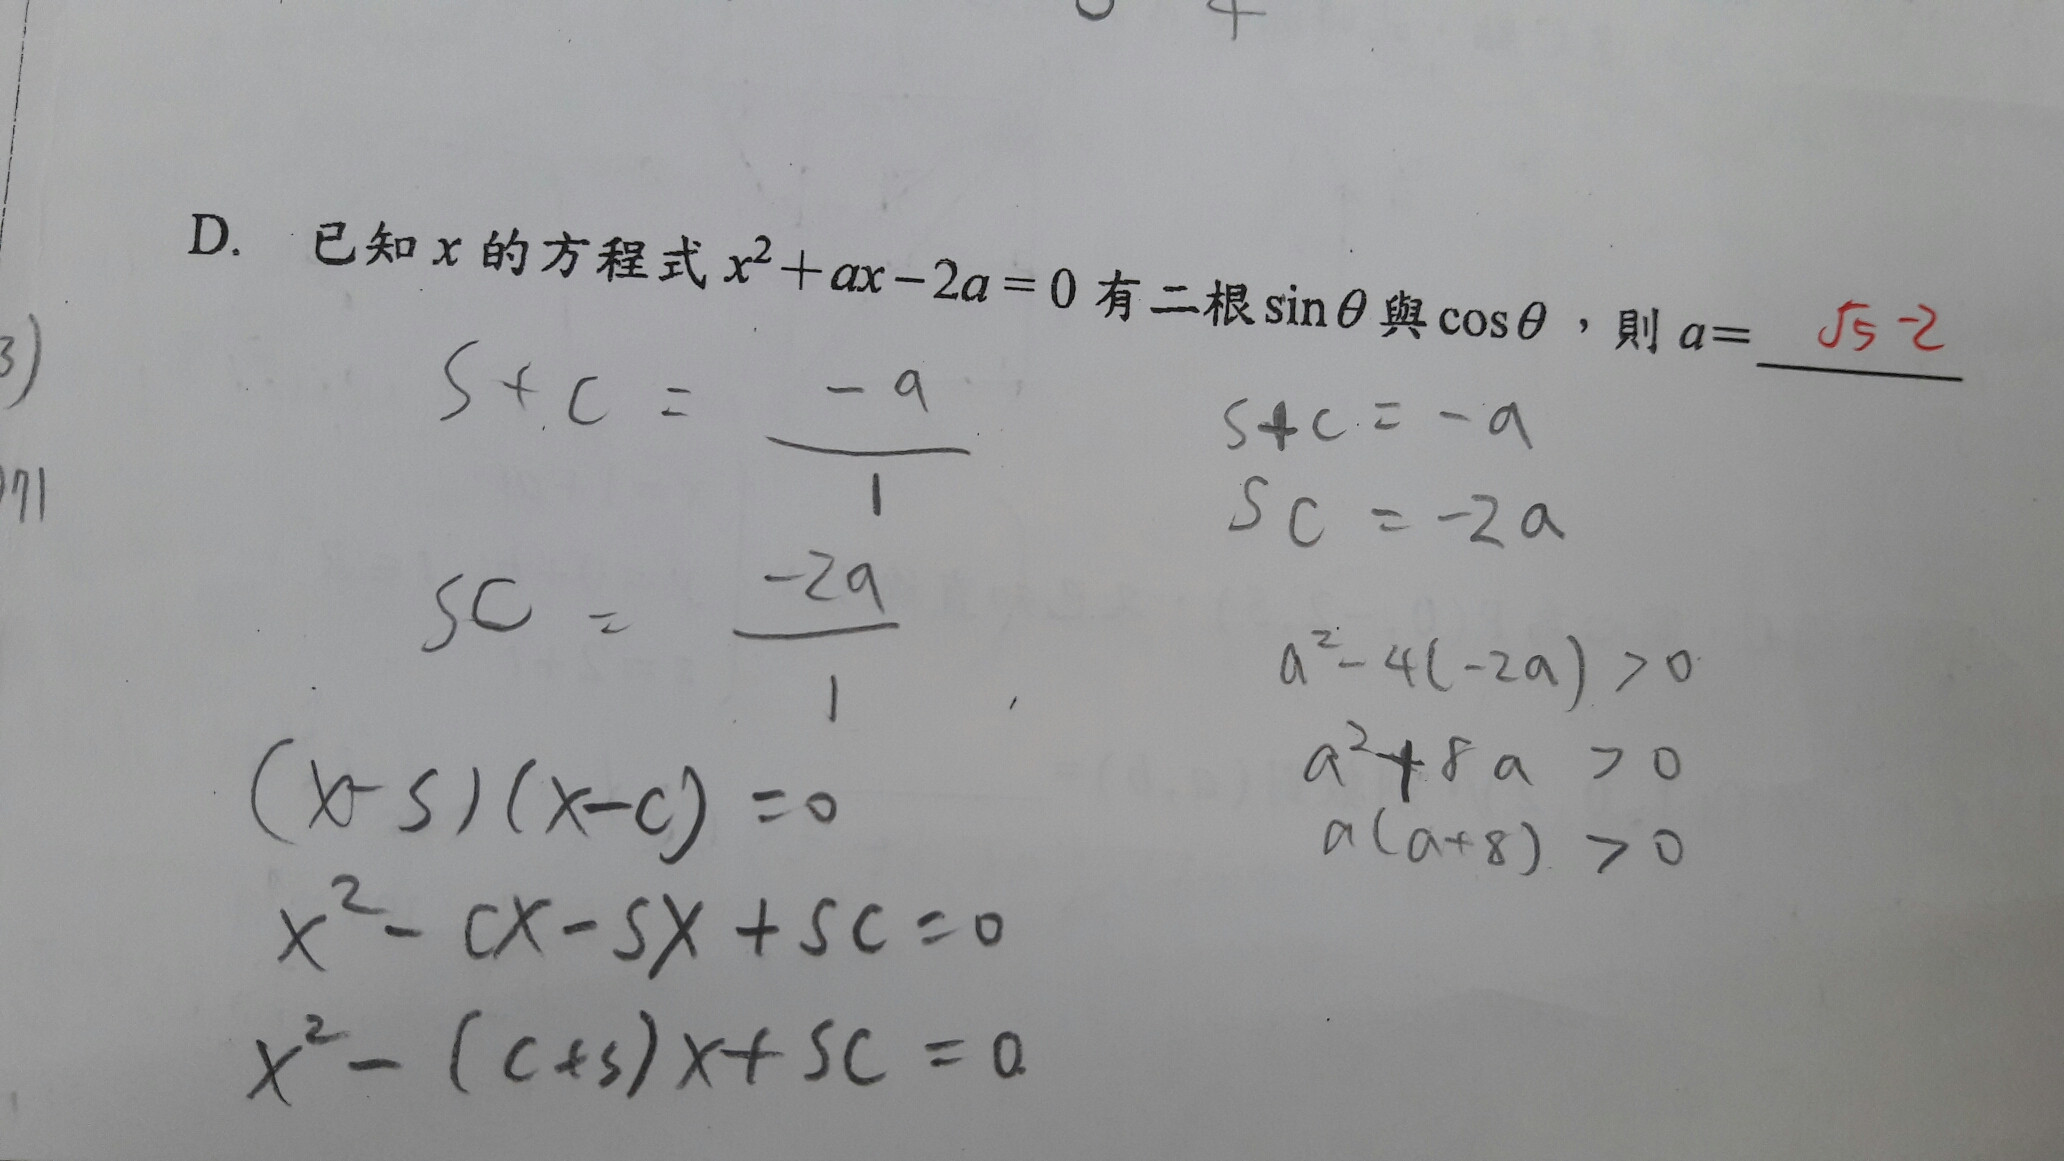 D. 已知 x 的方程式 x²+ax-2a=0 有二根 sinθ 與 cosθ，則 a= √5-2
S+C = -a/1
SC = -2a/1
(x-s)(x-c)=0
x²-cx-sx+sc=0
x²-(c+s)x+sc=0
s+c=-a
sc=-2a
a²-4(-2a)>0
a²+8a>0
a(a+8)>0
3)
71